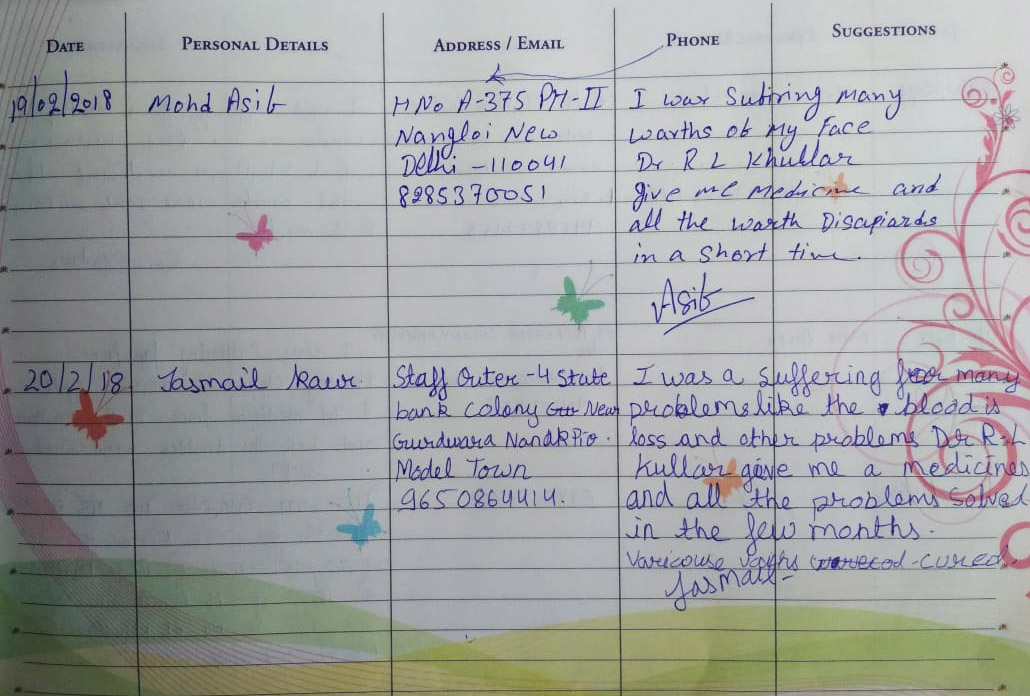 DATE PERSONAL DETAILS ADDRESS / EMAIL PHONE SUGGESTIONS
19/02/2018 Mohd Asif H No A-375 PH-II I was Subiring many
Nangloi New warths of My Face
Delhi -110041 Dr R L Khullar
8285370051 give me medicine and
all the warth Discapiards
in a short time.
Asif
20/2/18 Jasmail Kaur. Staff Outer -4 State I was a suffering for many
bank colony Near problems like the blood is
Gurdwara Nanak Pio. loss and other problems Dr R.L
Model Town Kullar give me a medicines
9650864414. and all the problems solved
in the few months.
Varicouse cured.
Jasmail